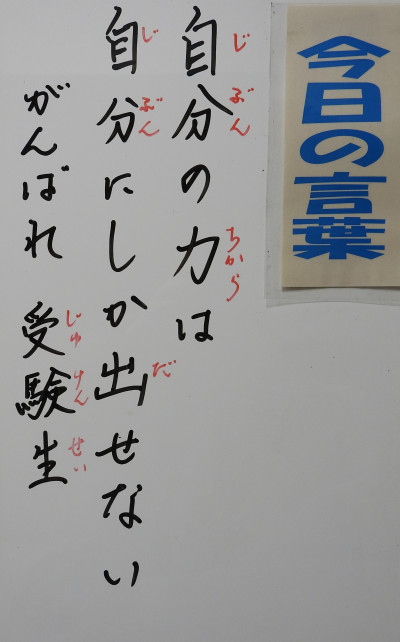 今日の言葉
自分の力は
じぶん ちから
自分にしか出せない
じぶん だ
がんばれ 受験生
じゅけんせい